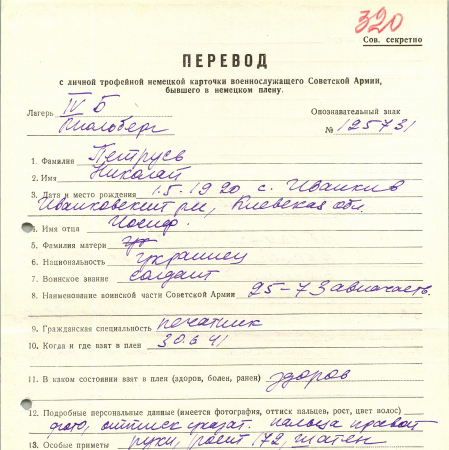 320
Сов. секретно
ПЕРЕВОД
с личной трофейной немецкой карточки военнослужащего Советской Армии,
бывшего в немецком плену.
Лагерь IV Б Опознавательный знак
Мюльберг № 125731
1. Фамилия Петрусь
2. Имя Николай
3. Дата и место рождения 1.5.1920 с. Иванков
Иванковский р-н, Киевская обл.
4. Имя отца Иосиф.
5. Фамилия матери
6. Национальность украинец
7. Воинское звание солдат
8. Наименование воинской части Советской Армии 25-73 авиачасть.
9. Гражданская специальность печатник
10. Когда и где взят в плен 30.6.41
11. В каком состоянии взят в плен (здоров, болен, ранен) здоров
12. Подробные персональные данные (имеется фотография, оттиск пальцев, рост, цвет волос)
фото, оттиск указат. пальца правой
13. Особые приметы руки, рост 172, шатен